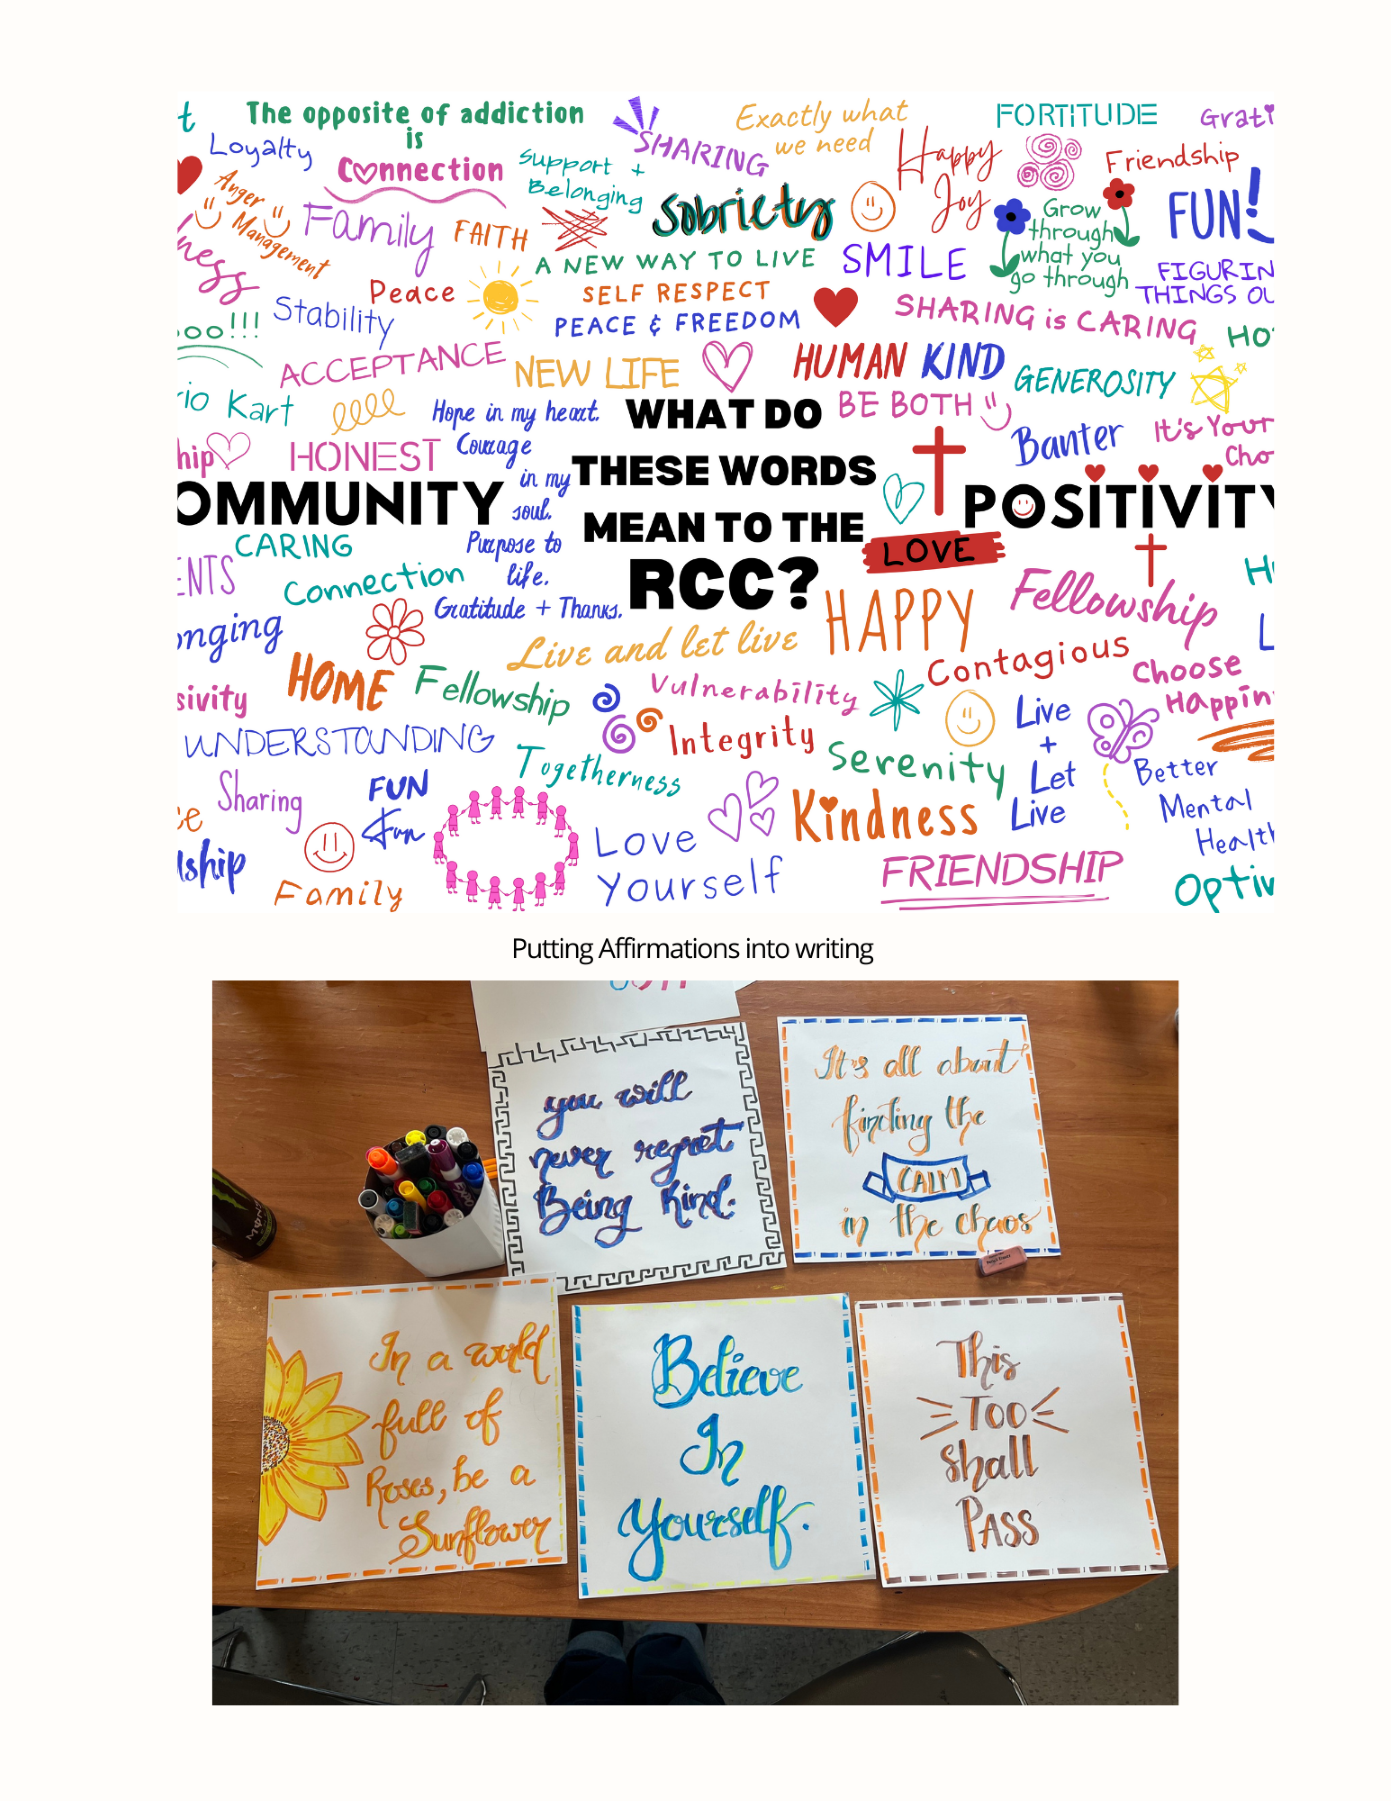 t
The opposite of addiction
is
Connection
Loyalty
SHARING
Exactly what
we need
FORTITUDE
Grati
Support +
Belonging
Happy
Joy
Friendship
Anger
Management
Family
FAITH
Sobriety
Grow
through
what you
go through
FUN!
ness
Peace
A NEW WAY TO LIVE
SMILE
FIGURIN
THINGS OU
SELF RESPECT
Stability
PEACE & FREEDOM
SHARING is CARING
HO
oo!!!
ACCEPTANCE
NEW LIFE
HUMAN KIND
BE BOTH
GENEROSITY
rio Kart
Hope in my heart.
Courage
in my
soul.
Purpose to
life.
Gratitude + Thanks.
WHAT DO
THESE WORDS
MEAN TO THE
RCC?
Banter
It's Your
Cho
hip
HONEST
OMMUNITY
POSITIVITY
CARING
LOVE
ENTS
Connection
Fellowship
H
onging
HAPPY
L
Live and let live
Contagious
Choose
Happin
HOME
Fellowship
Vulnerability
sivity
Live
+
Let
Live
UNDERSTANDING
Integrity
Togetherness
Serenity
Better
Mental
Health
Sharing
FUN
Fun
Kindness
e
Love
Yourself
lship
FRIENDSHIP
Family
Optiv
Putting Affirmations into writing
you will
never regret
Being Kind.
It's all about
finding the
CALM
in the chaos
In a world
full of
Roses, be a
Sunflower
Believe
In
Yourself.
This
Too
shall
PASS